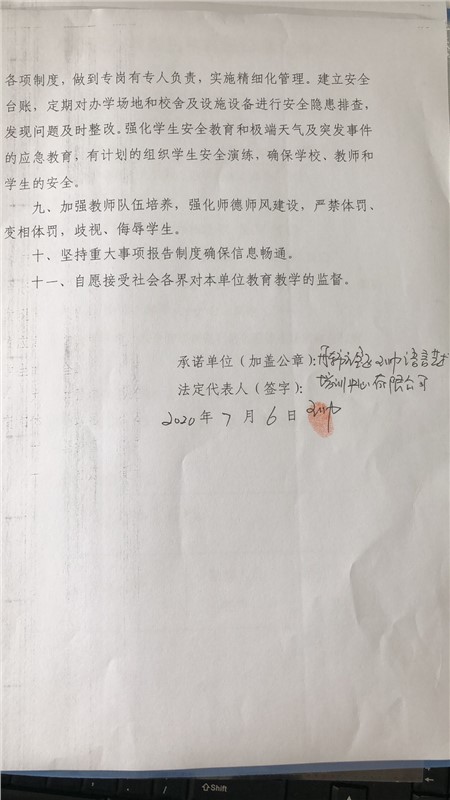 各项制度，做到专岗有专人负责，实施精细化管理。建立安全
台账，定期对办学场地和校舍及设施设备进行安全隐患排查，
发现问题及时整改。强化学生安全教育和极端天气及突发事件
的应急教育，有计划的组织学生安全演练，确保学校、教师和
学生的安全。
九、加强教师队伍培养，强化师德师风建设，严禁体罚、
变相体罚，歧视、侮辱学生。
十、坚持重大事项报告制度确保信息畅通。
十一、自愿接受社会各界对本单位教育教学的监督。
承诺单位（加盖公章）：语言艺术
法定代表人（签字）：培训中心有限公司
2020年7月6日
Shift